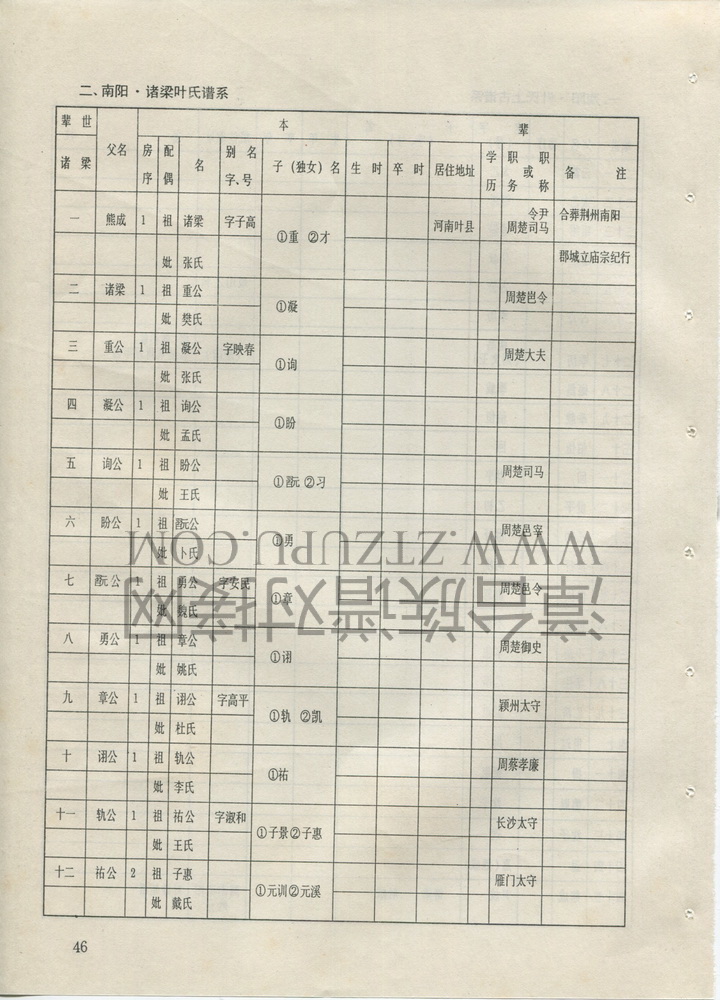 二、南阳·诸梁叶氏谱系
辈世 诸梁 父名 本 辈
房序 配偶 名 别名字、号 子（独女）名 生时 卒时 居住地址 学历 职或职务称 备注
一 熊成 1 祖 诸梁 字子高 ①重 ②才 河南叶县 令尹 周楚司马 合葬荆州南阳
妣 张氏 郡城立庙宗纪行
二 诸梁 1 祖 重公 ①凝 周楚邑令
妣 樊氏
三 重公 1 祖 凝公 字映春 ①询 周楚大夫
妣 张氏
四 凝公 1 祖 询公 ①盼
妣 孟氏
五 询公 1 祖 盼公 ②习 周楚司马
妣 王氏
六 盼公 1 祖 ①勇 周楚邑宰
妣 卜氏
七 祖 勇公 字安民 ①章 周楚邑令
妣 魏氏
八 勇公 1 祖 章公 ①诩 周楚御史
妣 姚氏
九 章公 1 祖 诩公 字高平 ①轨 ②凯 颖州太守
妣 杜氏
十 诩公 1 祖 轨公 ①祐 周蔡孝廉
妣 李氏
十一 轨公 1 祖 祐公 字淑和 ①子景②子惠 长沙太守
妣 王氏
十二 祐公 2 祖 子惠 ①元训②元溪 雁门太守
妣 戴氏
46
WWW.ZTZUPU.COM
漳台族谱对接网